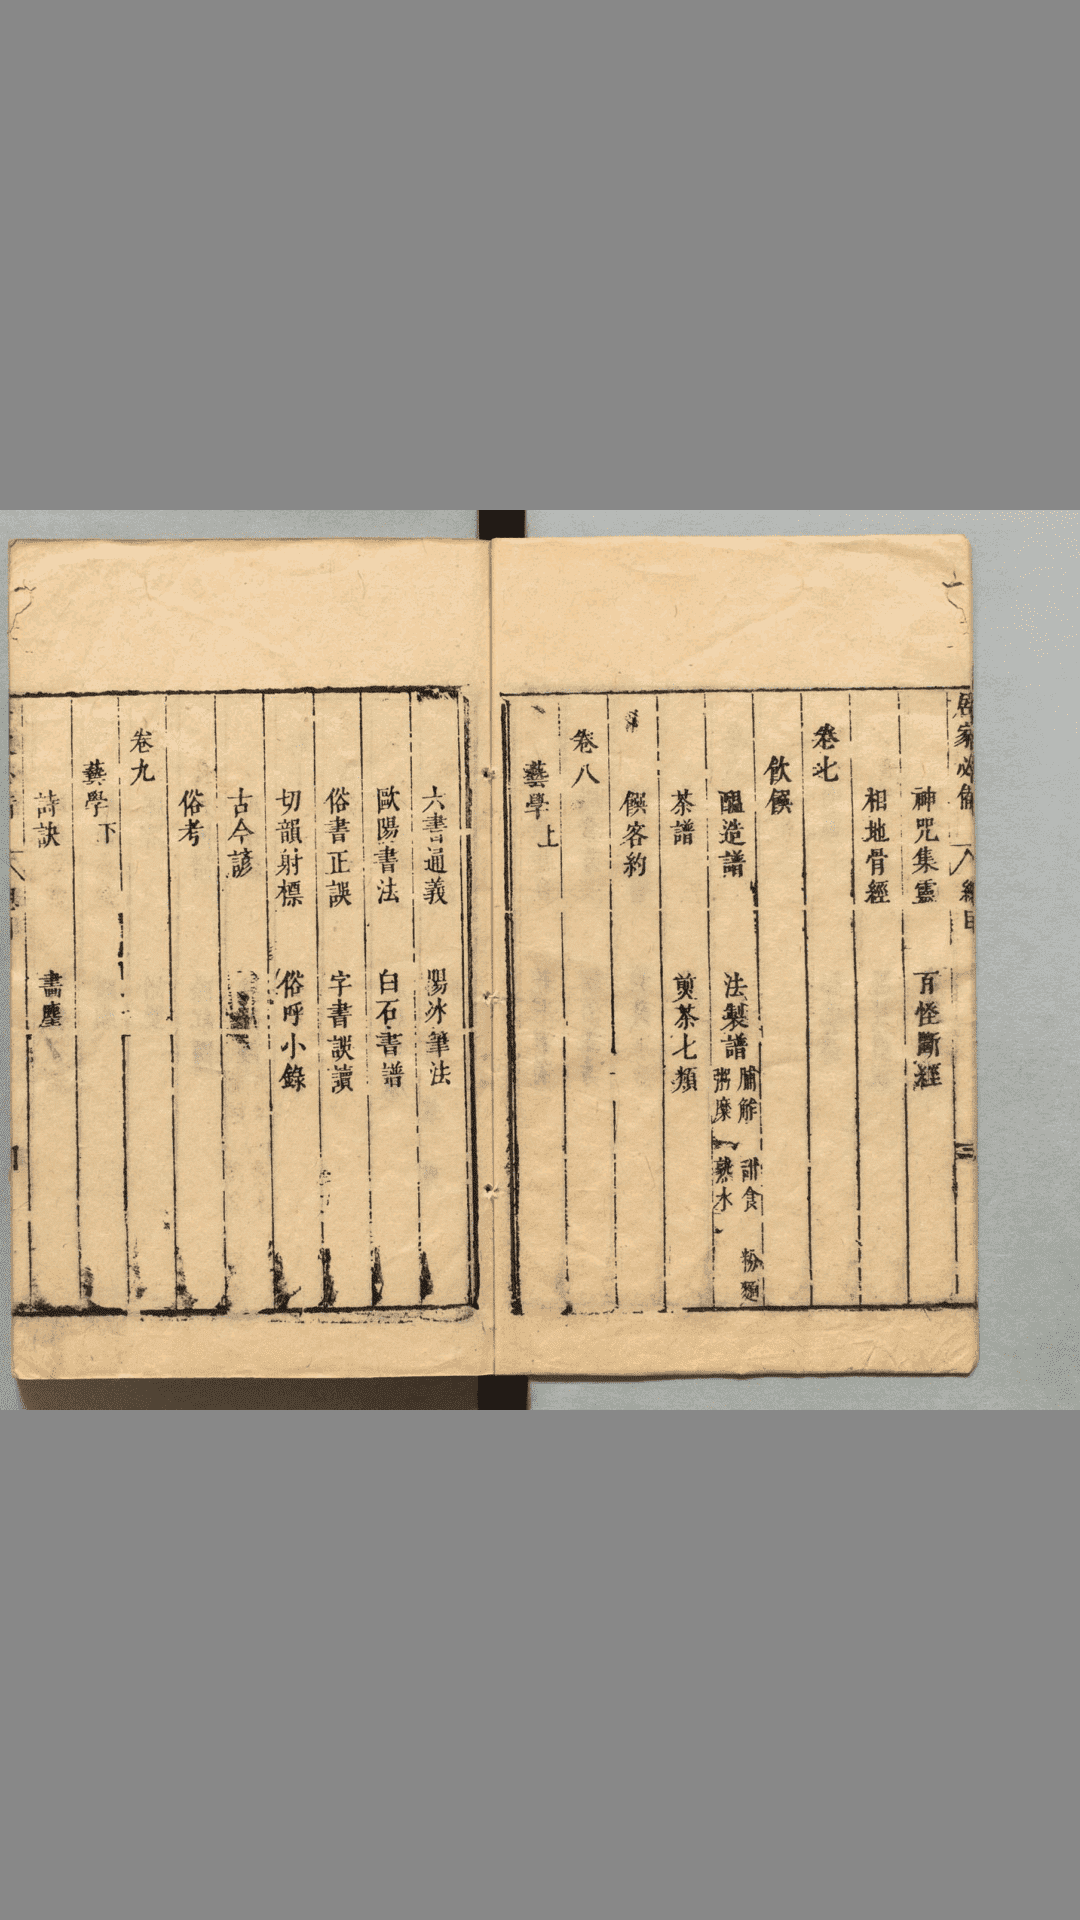 居家必備 總目 三
神咒集靈 百怪斷經
相地骨經
卷七
飲饌
醞造譜 法製譜 脯鮓 甜食 粉麵 粥糜 熟水
茶譜 煎茶七類
饌客約
卷八
藝學上
六書通義 陽冰筆法
歐陽書法 白石書譜
俗書正誤 字書誤讀
切韻射標 俗呼小錄
古今諺
俗考
卷九
藝學下
詩訣 畫麈